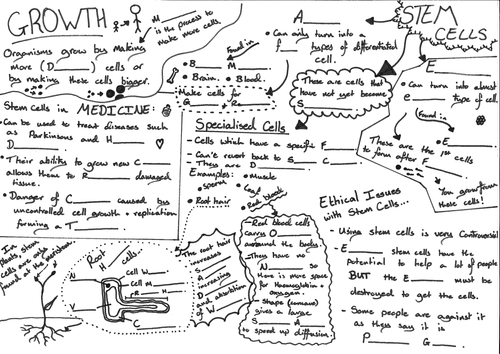 GROWTH
M______
is the process to
make more cells.
Organisms grow by making
more (D______) cells or
by making these cells bigger.
STEM
CELLS
A______
• Can only turn into a
f____ types of differentiated
cell.
Found in
• B____ M____
• Brain. • Blood.
Make cells for
G______ + Re______
These are cells that
have not yet become
S______
E______
• Can turn into almost
e______ type of cell.
Found in
• E______
These are the 1st cells
to form after F______
You grow from
these cells!
Stem Cells in MEDICINE:
• Can be used to treat diseases such
as Parkinsons and H______
D______
• Their ability to grow new C______
allows them to R______ damaged
tissue.
• Danger of C______ caused by
uncontrolled cell growth + replication
forming a T______
Specialised Cells
- Cells which have a specific F______
- Can't revert back to S____ C____
- They are D______
Examples:
• Sperm
• Muscle
• Leaf
• Red blood
• Root hair
Ethical Issues
with Stem Cells...
- Using stem cells is very controversial
- E______ stem cells have the
potential to help a lot of people
BUT the E______ must be
destroyed to get the cells.
- Some people are against it
as they say it is
P______ G______.
In
plants, stem
cells are only
found at the meristems
Root
H____ cells.
Cell W____
Cell M____
R____ H____
N
V
C
The root hair
increases
S______
A______
increasing
D______
and absorption
of W______
- Red blood cells
carry O______
around the body.
- They have no
N______ so
there is more space
for Haemoglobin +
oxygen.
- Shape (concave)
gives a large
S____ A____
to speed up diffusion.